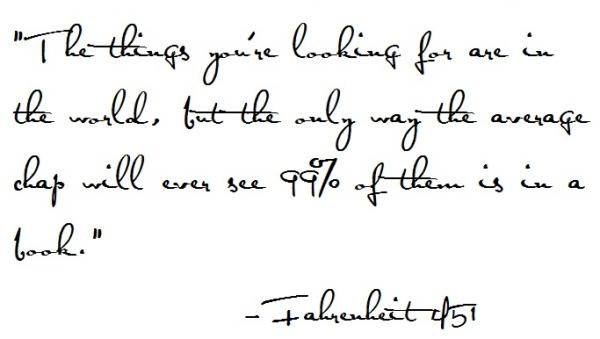 "The things you're looking for are in
the world, but the only way the average
chap will ever see 99% of them is in a
book."
-Fahrenheit 451